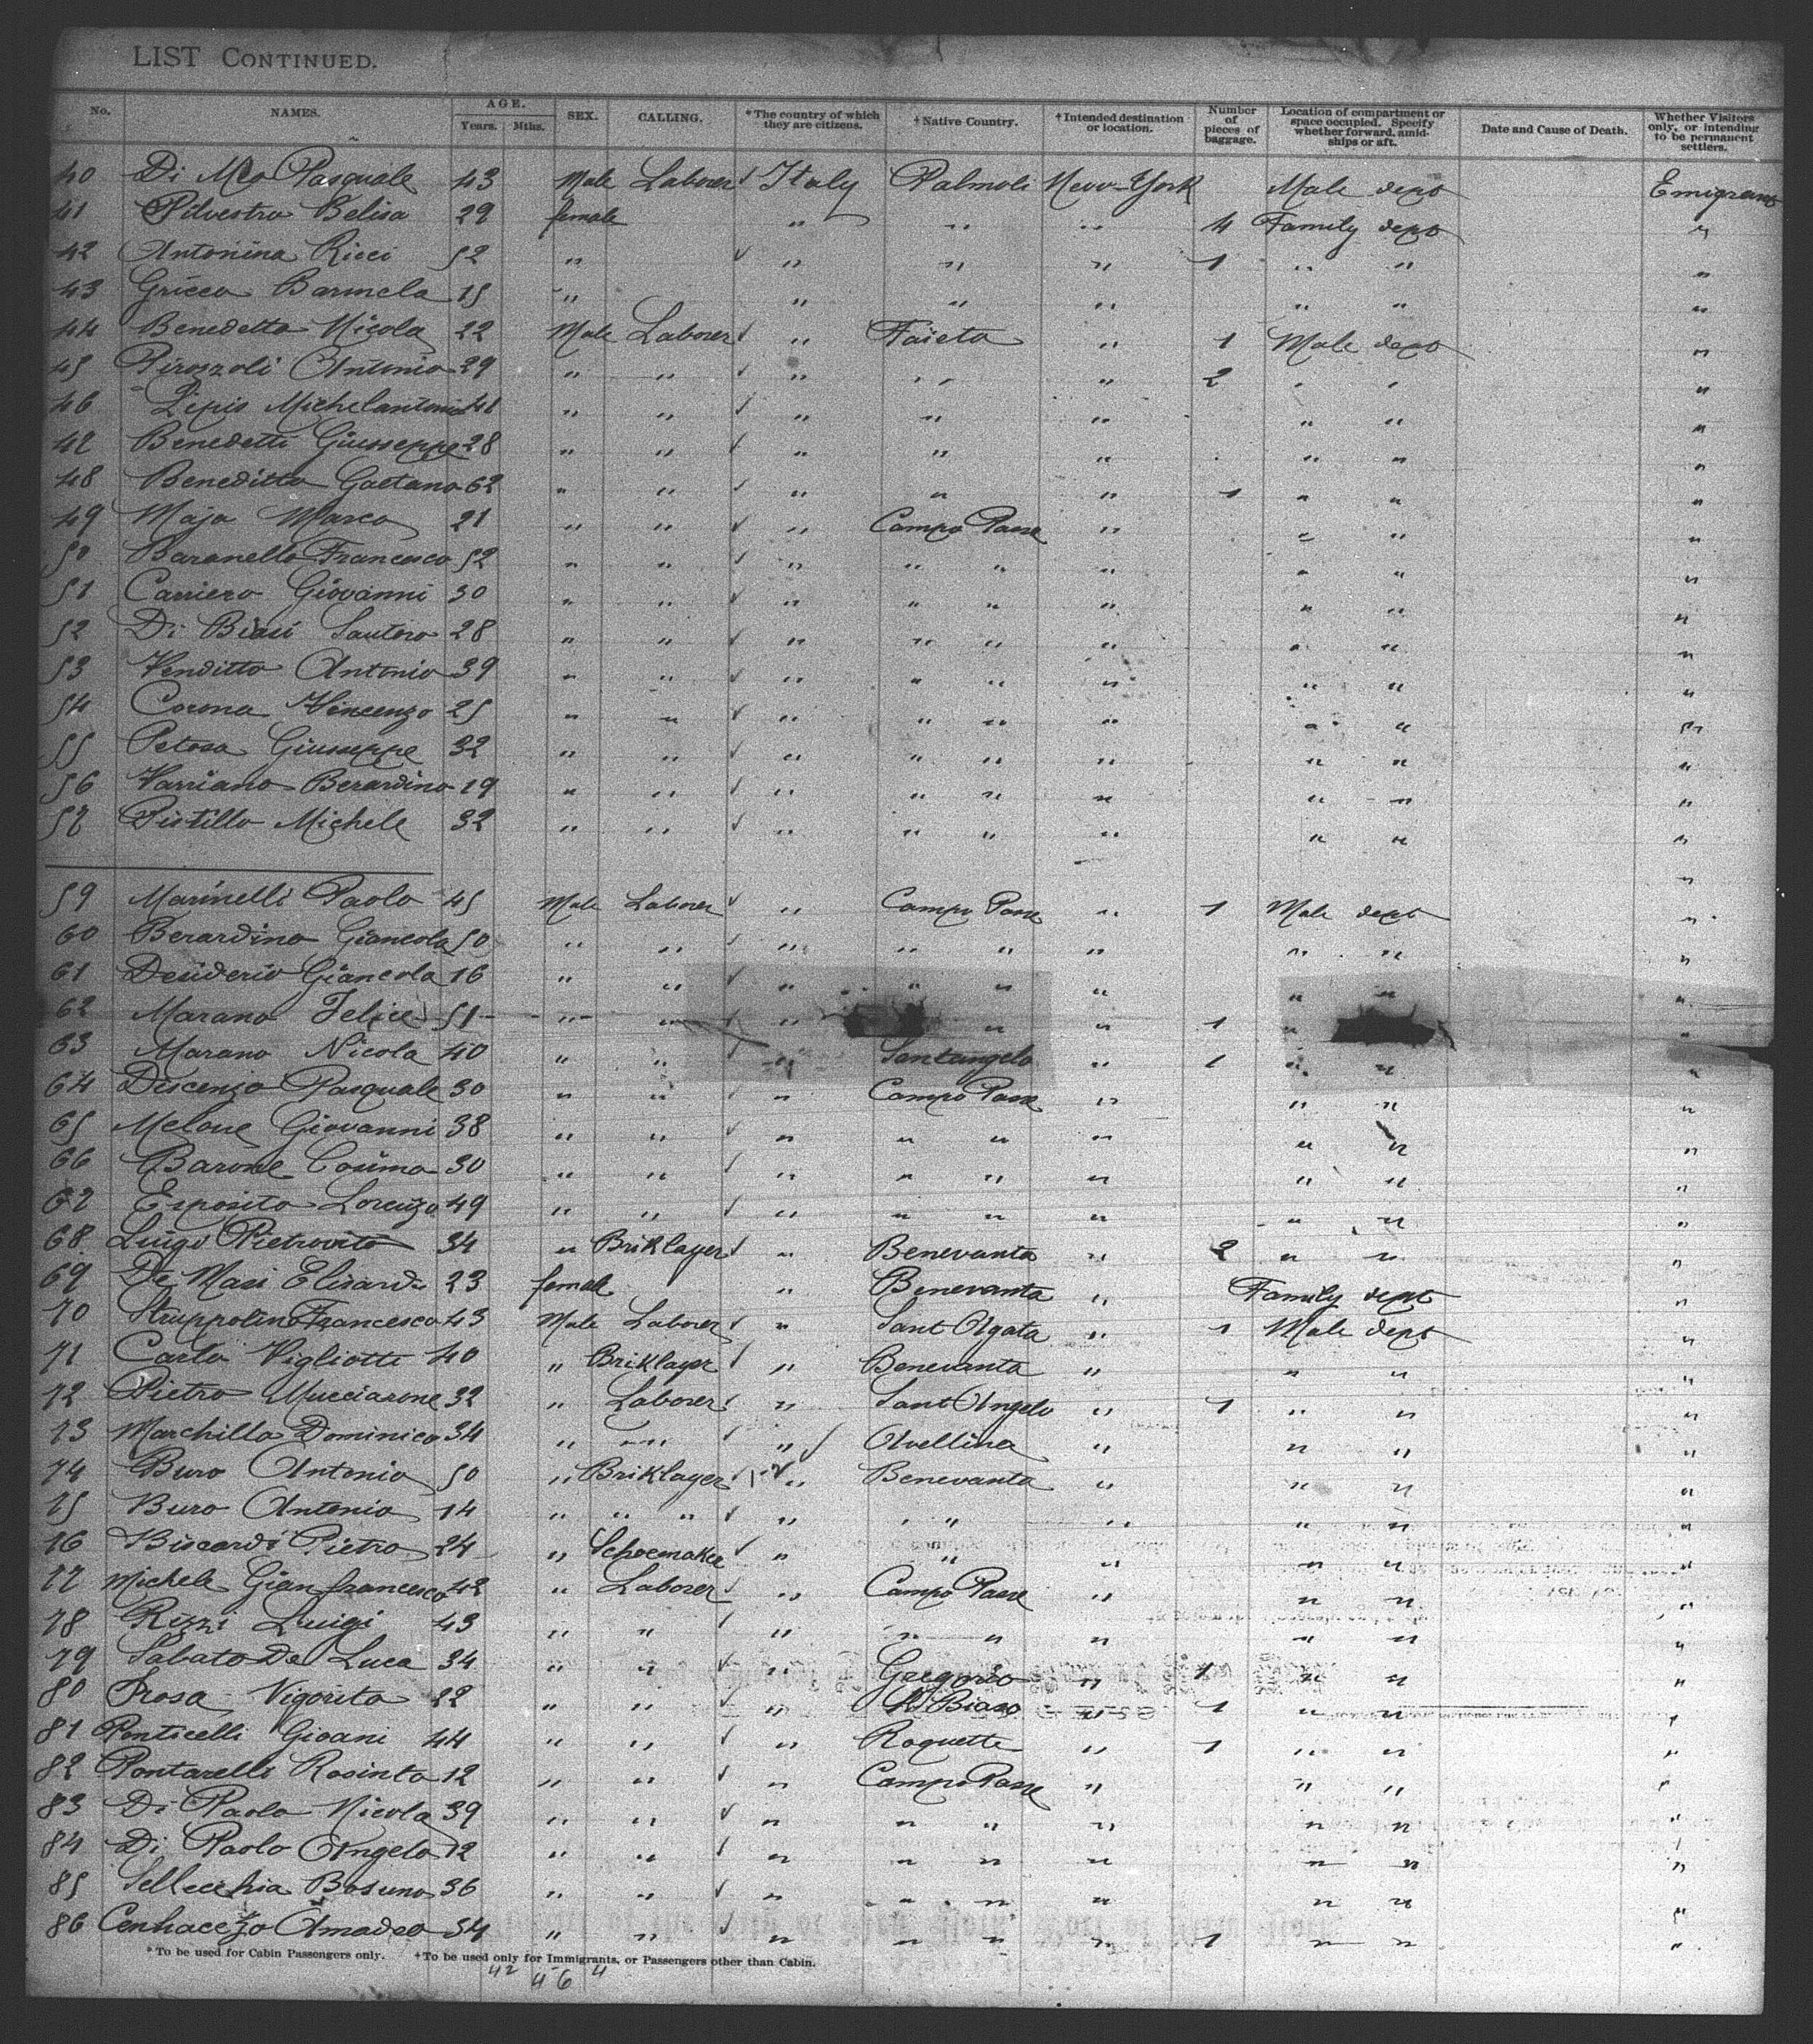 LIST CONTINUED.
No. NAMES. AGE. Years. Mths. SEX. CALLING. *The country of which they are citizens. †Native Country. †Intended destination or location. Number of pieces of baggage. Location of compartment or space occupied. Specify whether forward, amidships or aft. Date and Cause of Death. Whether Visitors only, or intending to be permanent settlers.
40 Di Meo Pasquale 43 Male Laborer ✓ Italy Palmoli New-York Male dept Emigrant
41 Silvestro Belisa 29 female " " " 4 Family dept "
42 Antonina Ricci 52 " ✓ " " " 1 " " "
43 Gricco Barmela 15 " " " " " " "
44 Benedetto Nicola 22 Male Laborer ✓ " Faieta " 1 Male dept "
45 Antonio 29 " " ✓ " " " " 2 " " "
46 Michelantonio " " ✓ " " " " " "
47 Benedetti Giusseppe 28 " " ✓ " " " " " "
48 Beneditto Gaetano 62 " " ✓ " " " 1 " " "
49 Maja Marco 21 " " ✓ " Campo Basse " " " "
50 Baranello Francesco 52 " " ✓ " " " " " " "
51 Carriero Giovanni 30 " " ✓ " " " " " " "
52 Di Biasi Santoro 28 " " ✓ " " " " " " "
53 Venditto Antonio 39 " " ✓ " " " " " " "
54 Corona Vincenzo 25 " " ✓ " " " " " " "
55 Petosa Giuseppe 32 " " ✓ " " " " " " "
56 Varriano Berardino 19 " " ✓ " " " " " " "
57 Pistillo Michele 32 " " ✓ " " " " " " "
59 Marinelli Paolo 45 Male Laborer ✓ " Campo Basse " 1 Male dept "
60 Berardino Giancola 50 " " ✓ " " " " " " "
61 Desiderio Giancola 16 " " ✓ " " " " " " "
62 Marano Felice 51 " " ✓ " " " 1 " "
63 Marano Nicola 40 " " ✓ " Santangelo " 1 " " "
64 Discenzo Pasquale 30 " " ✓ " Campo Basse " " " "
65 Melone Giovanni 38 " " ✓ " " " " " " "
66 Barone Cosimo 30 " " ✓ " " " " " " "
67 Esposito Lorenzo 49 " " ✓ " " " " " " "
68 Luigi Pietrovito 34 " Briklayer ✓ " Benevanta " 2 " " "
69 De Masi Elisard 23 female " Benevanta " Family dept "
70 Struppolino Francesco 43 Male Laborer ✓ " Sant Agata " 1 Male dept "
71 Carlo Vigliotti 40 " Briklayer ✓ " Benevanta " " " "
72 Pietro Mucciarone 32 " Laborer ✓ " Sant Angelo " 1 " " "
73 Marchillo Dominico 34 " " ✓ " ✓ Avellina " " " "
74 Buro Antonio 50 " Briklayer ✓ " Benevanta " " " "
75 Buro Antonio 14 " " " ✓ " " " " " " "
76 Biscardi Pietro 24 " Schoemaker ✓ " " " " " "
77 Michele Gianfrancesco 42 " Laborer ✓ " Campo Basse " " " "
78 Rizzi Luigi 43 " " ✓ " " " " " " "
79 Sabato De Luca 34 " " ✓ " Gregorio " 1 " " "
80 Vigorita 22 " " ✓ " Biaso " 1 " " "
81 Ponticelli Gioani 44 " " ✓ " Roquette " 1 " " "
82 Pontarelli Rosinto 12 " " ✓ " Campo Basse " " " "
83 Di Paolo Nicola 39 " " ✓ " " " " " " "
84 Di Paolo Angelo 12 " " ✓ " " " " " " "
85 Sellecchia 36 " " ✓ " " " " " " "
86 Amadeo 34 " " ✓ " " " " 1 " " "
* To be used for Cabin Passengers only. †To be used only for Immigrants, or Passengers other than Cabin.
42 4-6 4